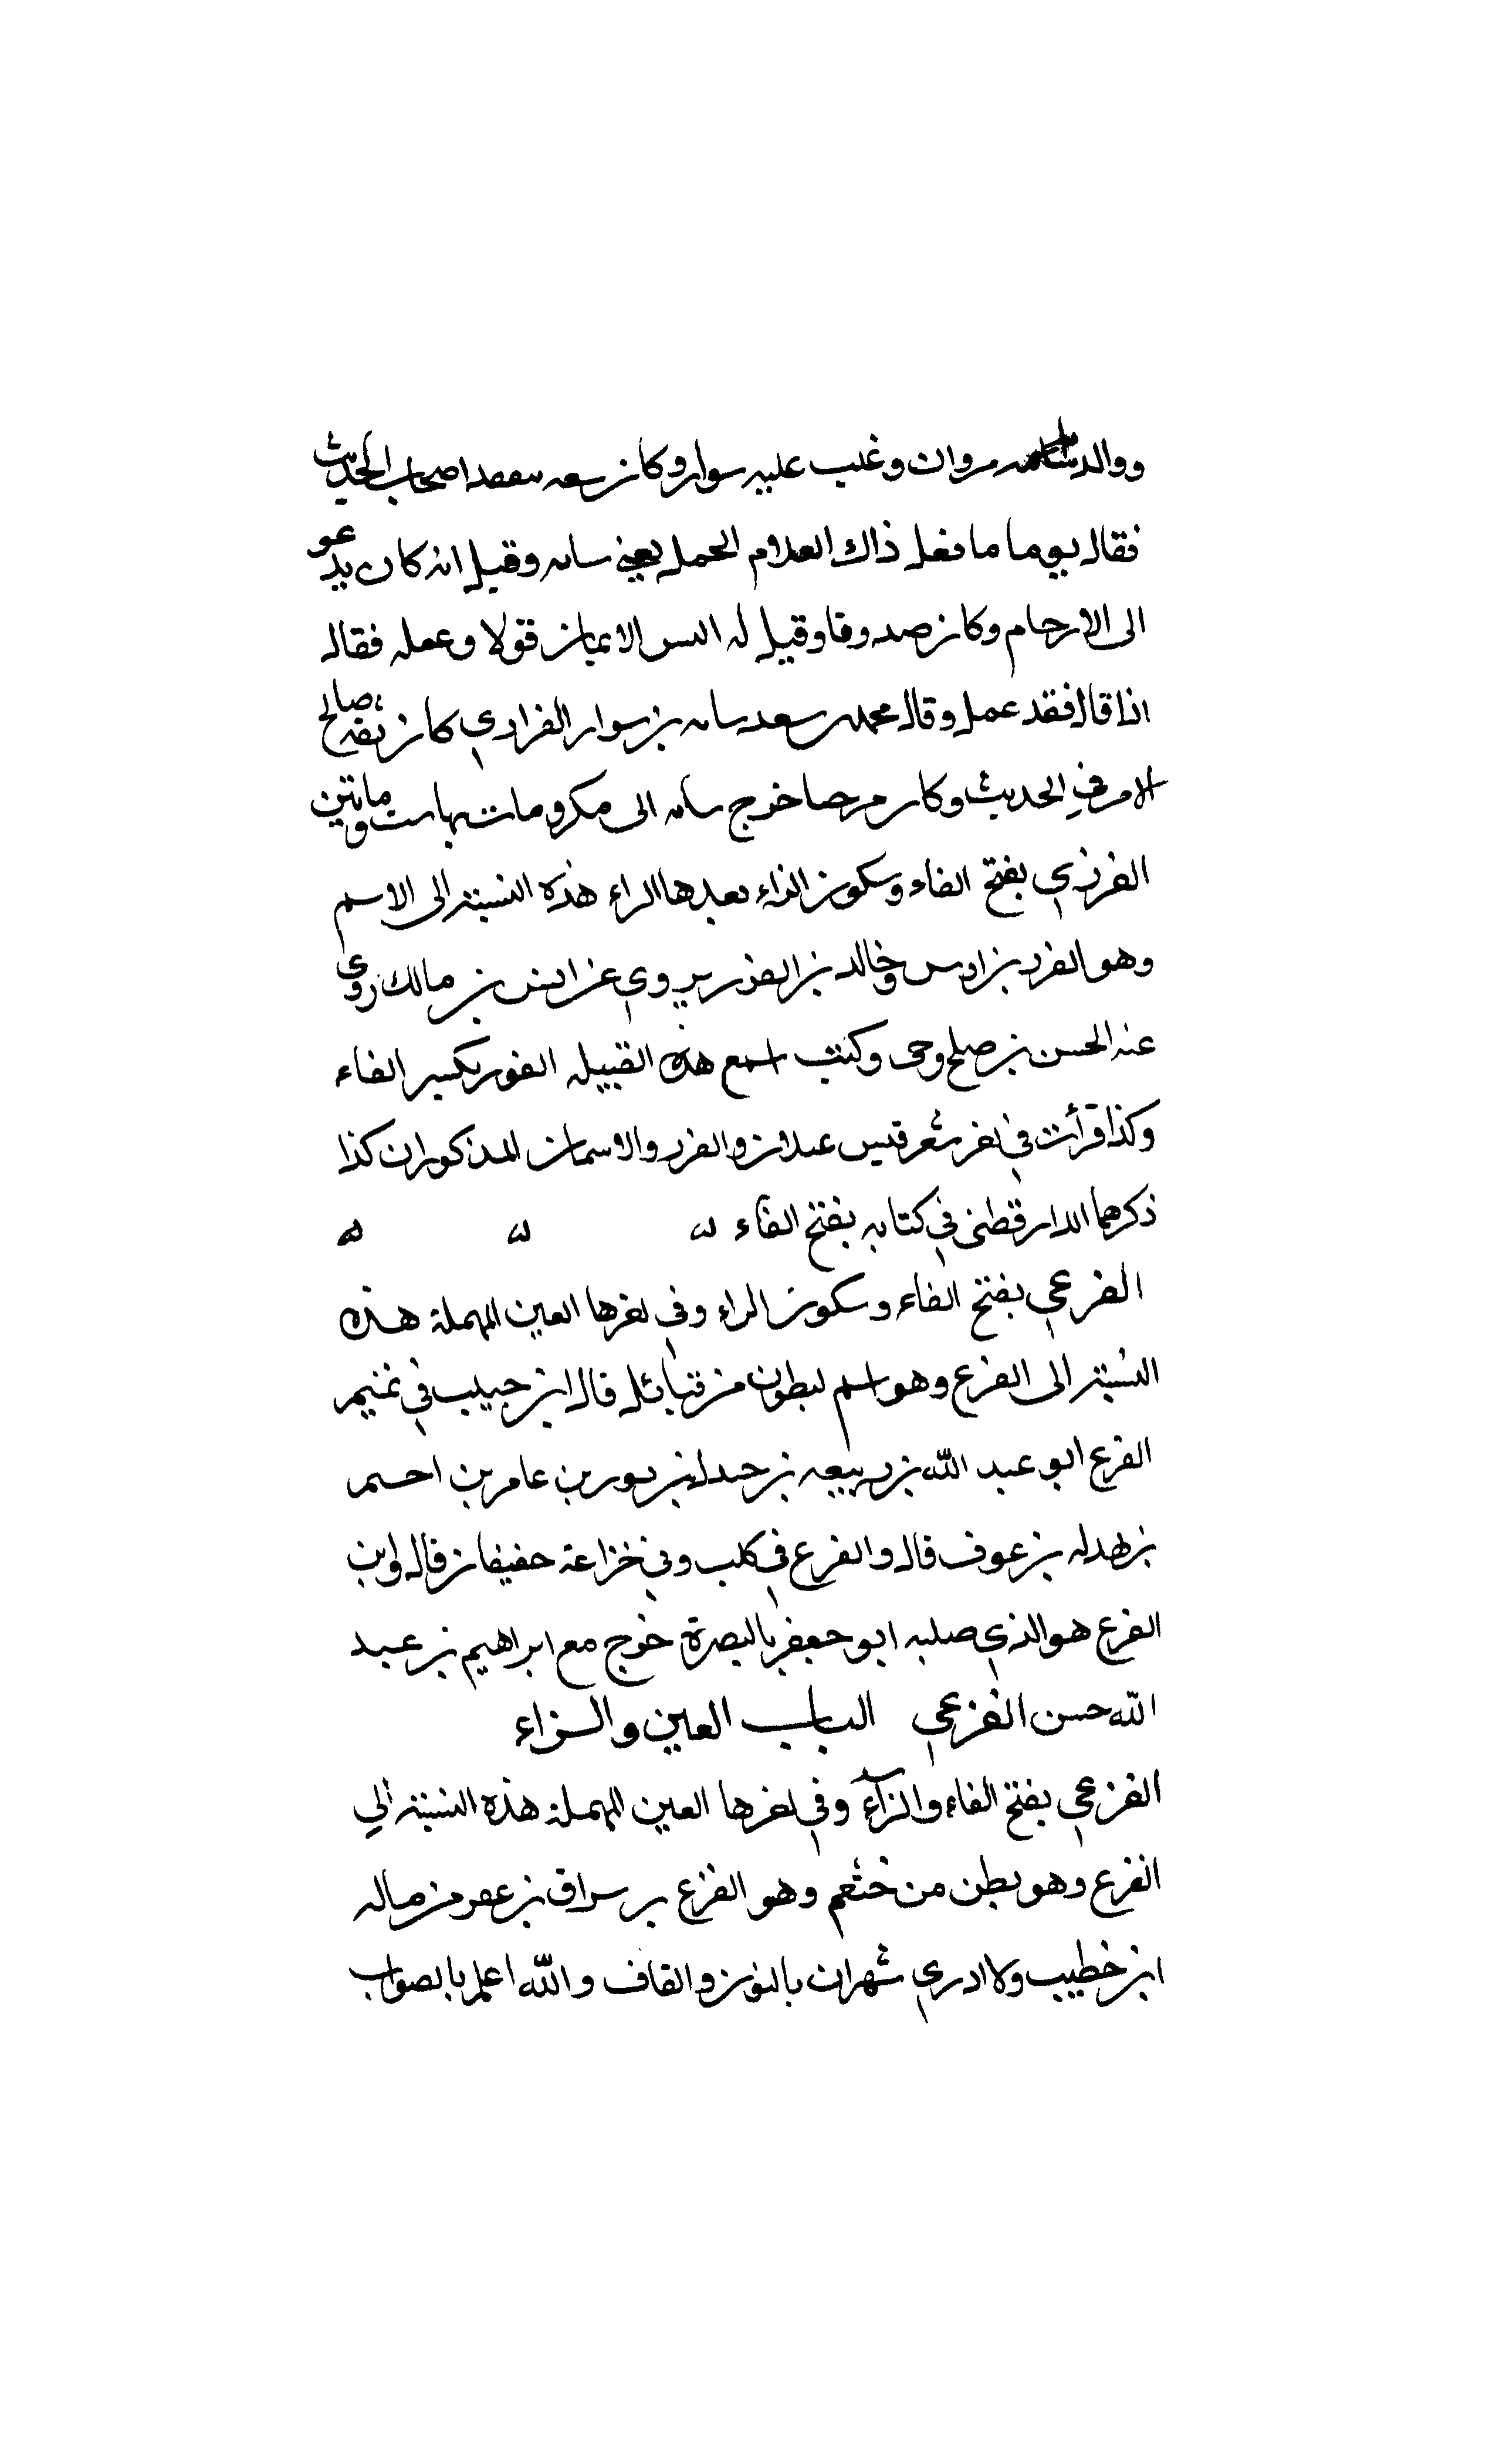 ووالد مروان وغلب عليه سوار وكان سعه سفقد اصحاب الحديث
فقال يوما ما فعل ذاك الغلام الجميل يعني شبابه وقيل انه كان يدعو
الى الارجاء وكان صدوقا وقيل له اليس الايمان قولا وعمله فقال
اذا قال فقد عمل وقال محمد بن سعد شبابه بن سوار الفزاري كان ثقه صالح
الامر في الحديث وكان مرجيا خرج شبابه الى مكه ومات بها ست ومايتين
الفرزي بفتح الفاء وسكون الزاء بعدها الراء هذه النسبة الى الاسم
وهو الفزر بن اوس وخالد بن الفزر يروي عن انس بن مالك روى
عنه الحسن بن صلح وحى وكنت اسمع هذه القبيله الفزر بكسر الفاء
وكذا قرأت في شعر قيس عيلان والفزر والاسمان المذكوران كذا
ذكرهما الدارقطني في كتابه بفتح الفاء ه ه ه
الفرعي بفتح الفاء وسكون الراء وفي اخرها العين المهملة هذه
النسبة الى الفرع وهو اسم لبطون من قبائل قال ابن حبيب في تميم
الفرع ابو عبد الله بن ربيعه بن جندل بن ثور بن عامر بن احيمر
بن بهدله بن عوف قال والفرع في كلب وفي خزاعة خفيفان قال وابن
الفرع هو الذي صلبه ابو جعفر بالبصرة خرج مع ابراهيم بن عبد
الله حسن الفزعي الباب العين والزاء
الفزعي بفتح الفاء والزآء وفي اخرها العين المهملة هذه النسبة الي
الفزع وهو بطن من خثعم وهو الفزع بن شهران بن عفرس قاله
ابن خطيب ولا ادري شهران بالنون والقاف والله اعلم بالصواب